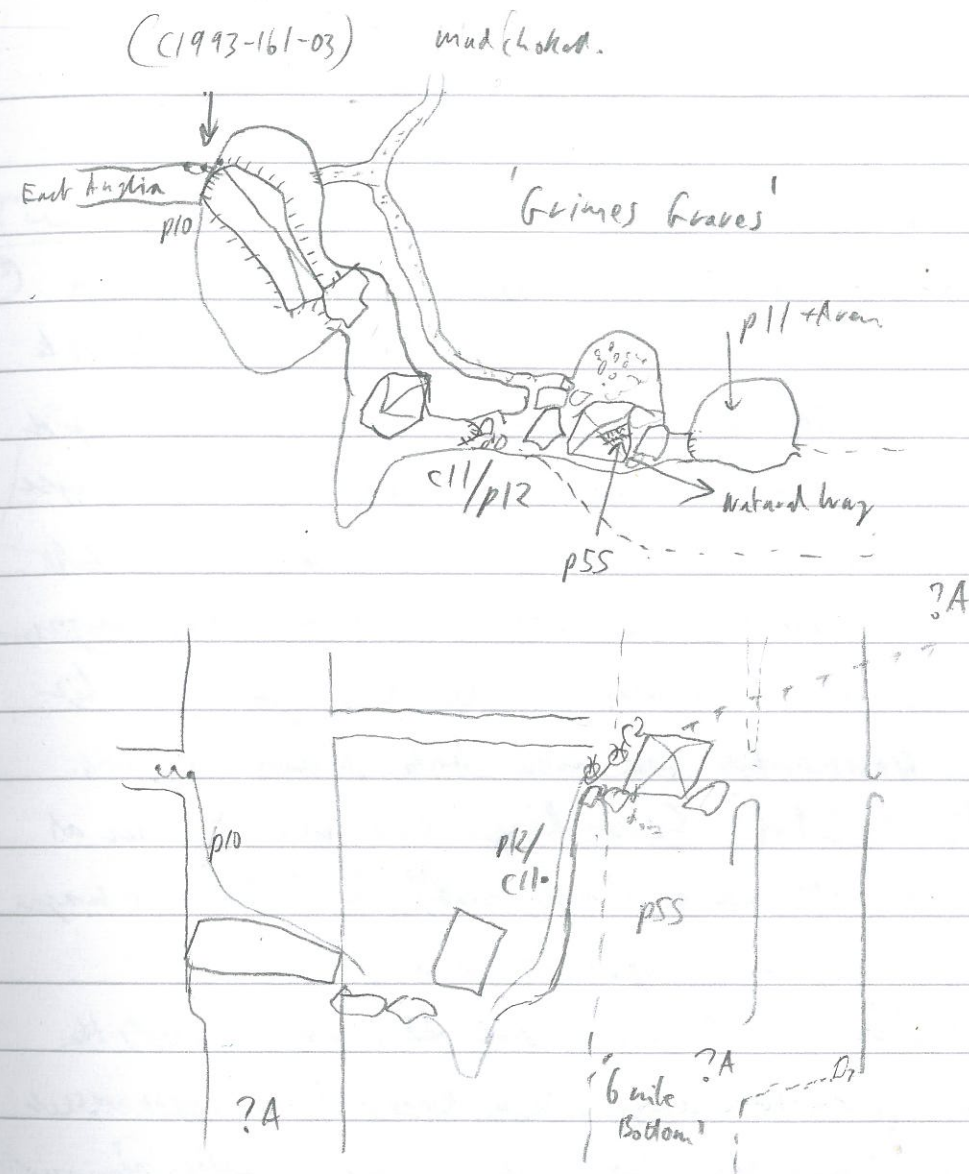 (C1993-161-03) mud choked.
East Anglia
p10
'Grimes Graves'
p11 + Aven
c11/p12
Natural Way
p55
?A
p10
p12/
c11
p55
?A
?A
'6 mile
Bottom'